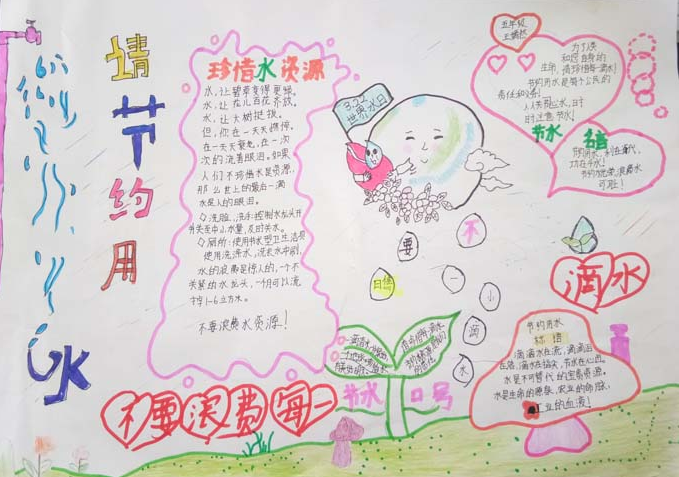 请节约用
水
珍惜水资源
水,让碧草变得更绿。
水,让花儿百花齐放。
水,让大树挺拔。
但,你在一天天
在一天天
次的流着眼泪。如果
人们不珍惜水资源,
那么世上的最后一滴
水是人的眼泪。
洗脸、洗手:控制水龙头开
关至中小水量,及时关水。
厕所:使用节水型卫生洁具
水的浪费是惊人的,一个不
关紧的水龙头,一个月可以流
掉1-6立方水。
不要浪费水资源!
3.22
世界水日
五年级
为了
生命,请珍惜每一滴水!
节约用水是每个公民的
责任和义务!
人人关心水,时
时注意节水!
节水
节约用水,利在当代,
功在千秋!
可耻!
不
要
一
小
滴
水
滴水
节水口号
节约用水
标语
滴滴水在流,滴滴油
在滴,滴水在指尖,节水在心田。
水是不可替代的宝贵资源。
水是生命的源泉,农业的命脉,
工业的血液!
不要浪费每一